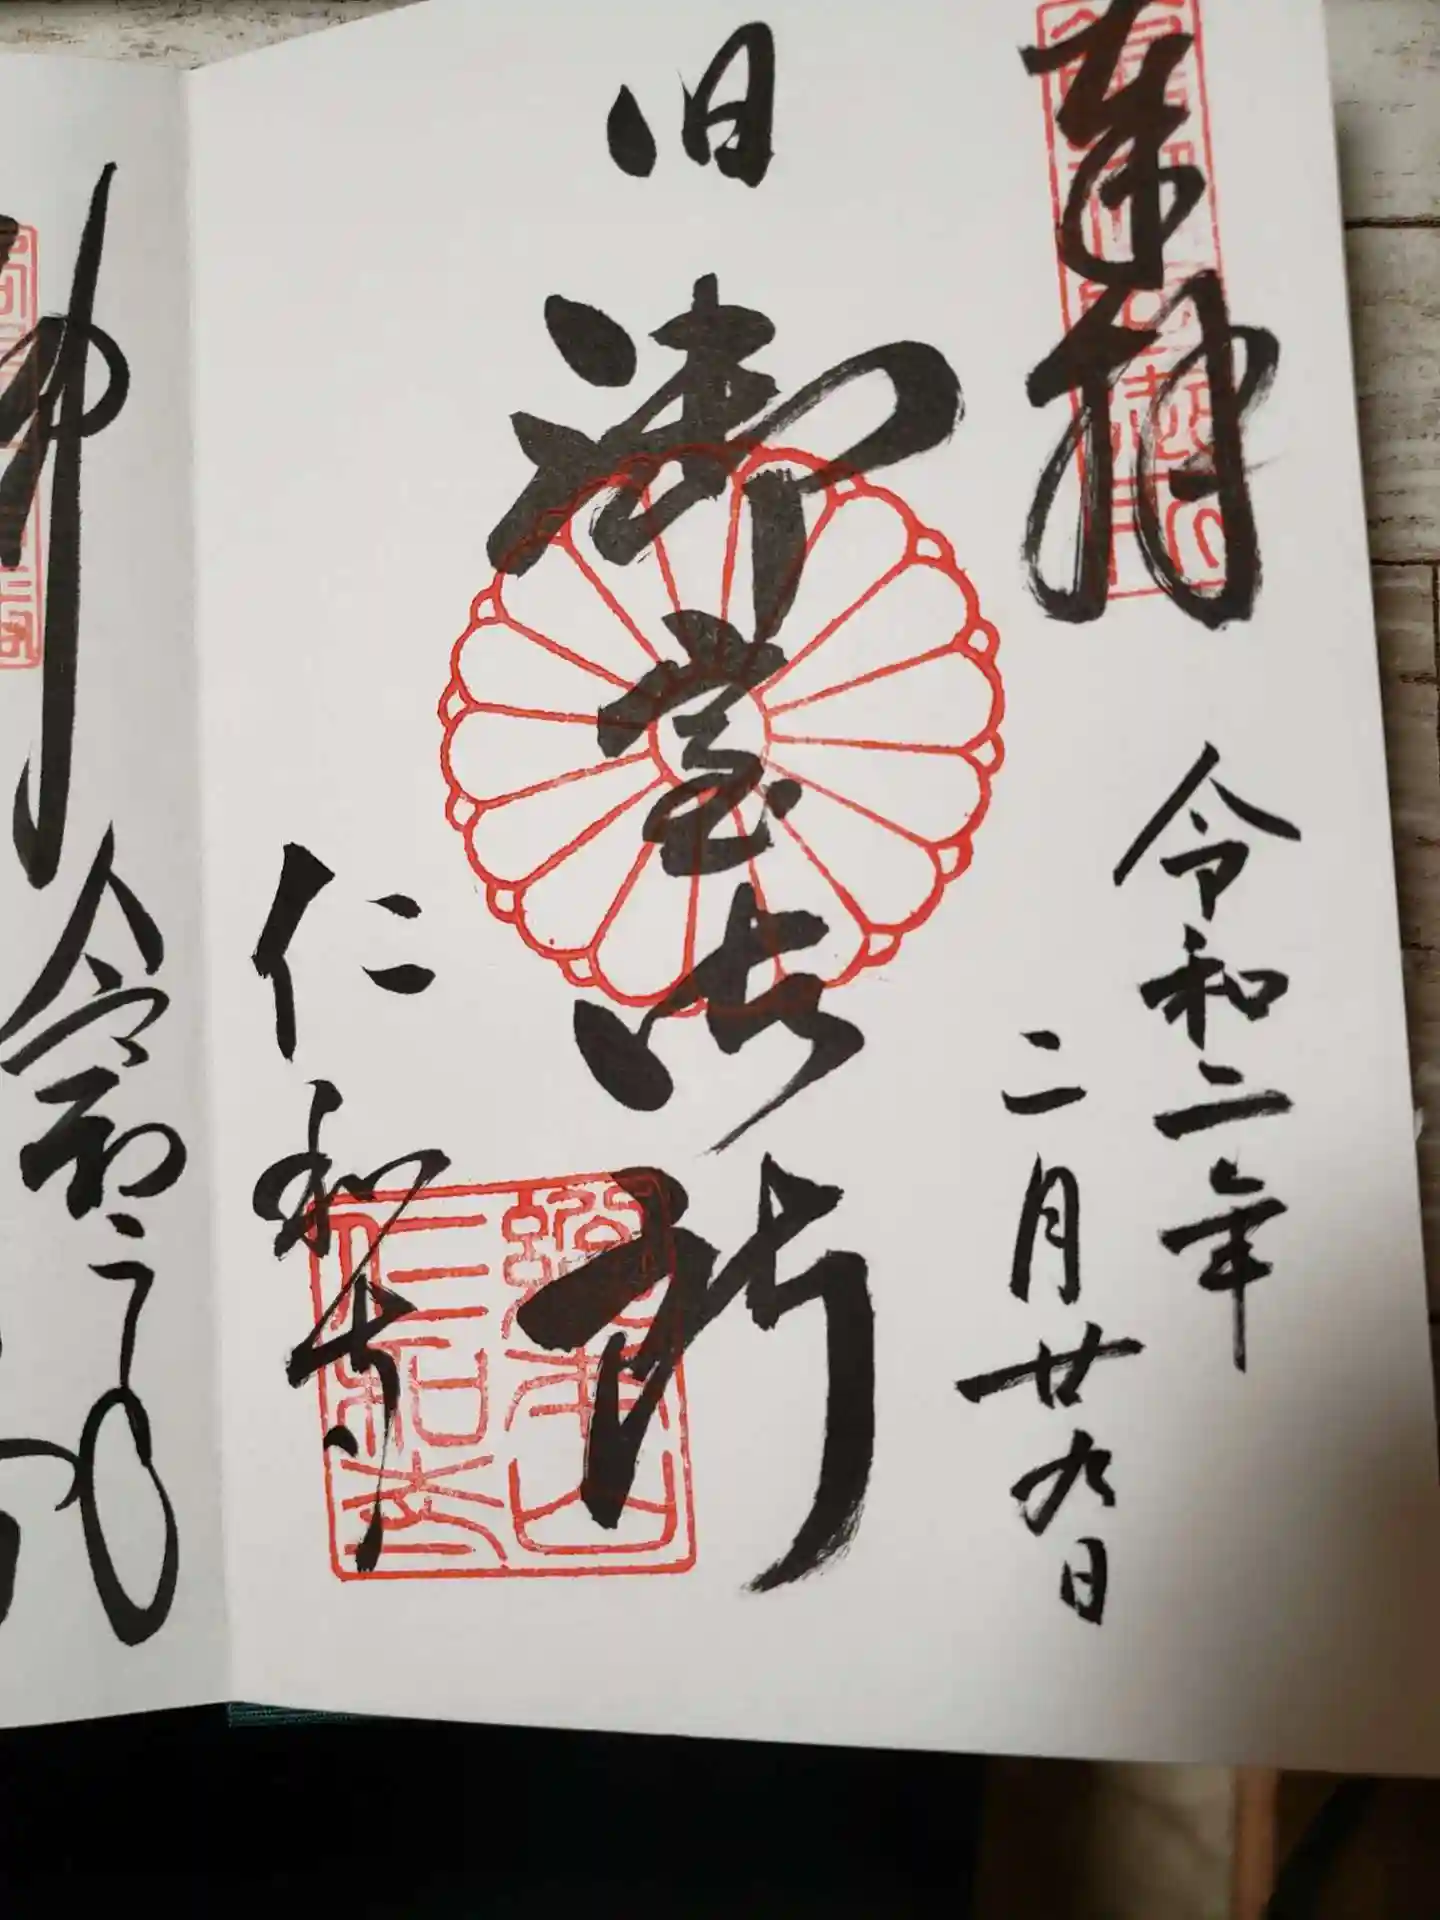 奉拝
令和二年
二月廿九日
旧御室御所
仁和寺
総本山
仁和寺
令和二